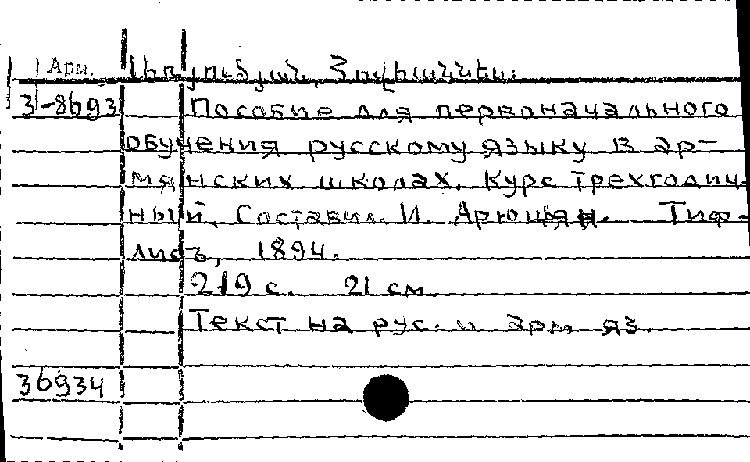 Арм. Հովհաննես.
3-8693 Пособие для первоначального
обучения русскому языку в ар-
мянских школах. Курс трехгодич-
ный. Составил И. Арюцян. Тиф-
лисъ, 1894.
219 с. 21 см.
Текст на рус. и арм яз.
36934